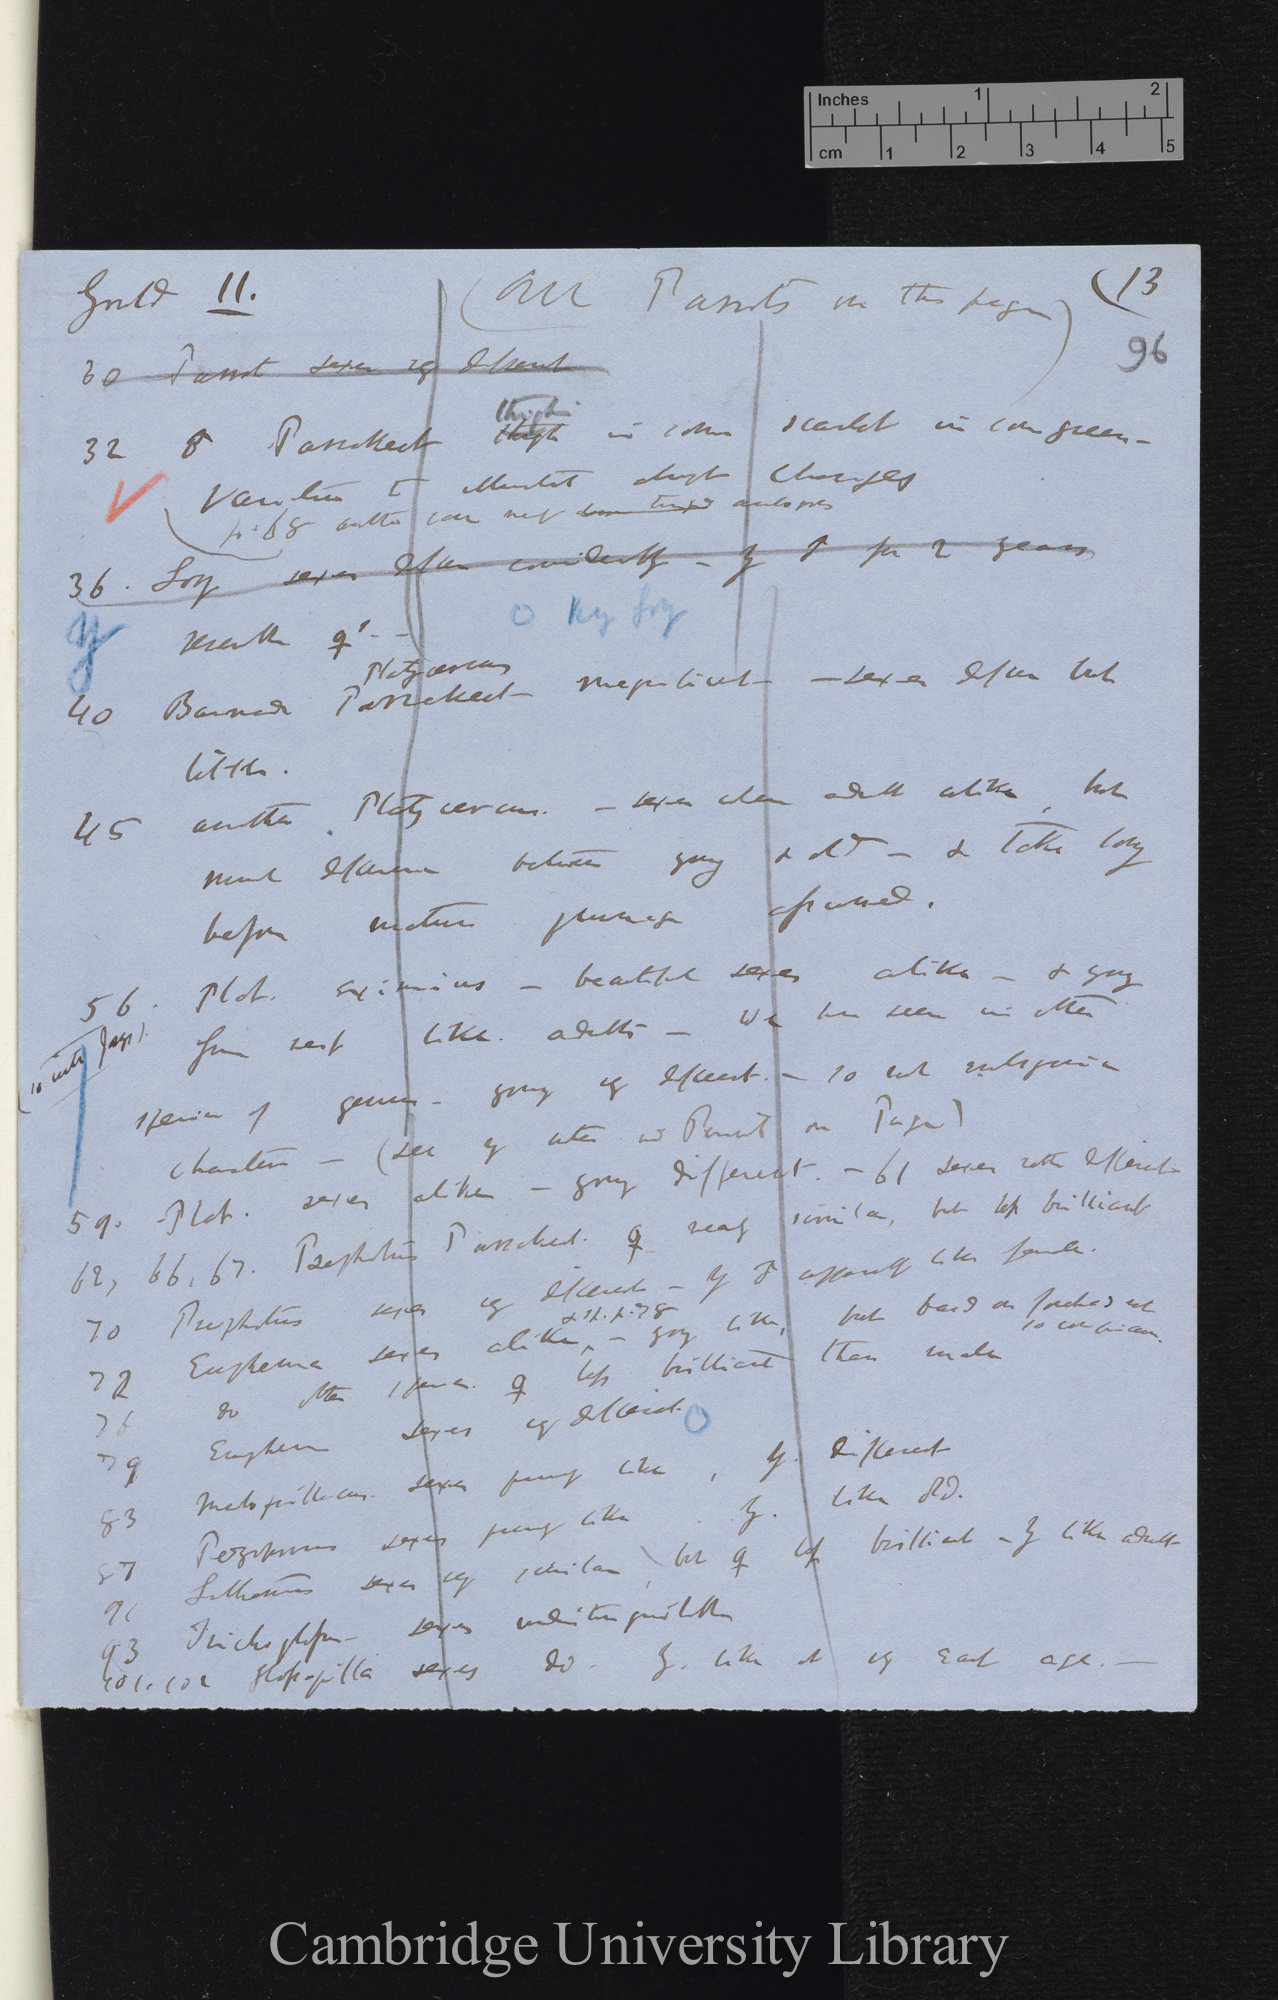 Inches 1 2
cm 1 2 3 4 5
Gould 11. (All Parrots on this page) (13
96
30 Parrot sexes differe
32 ♂ Parrakeet thighs in some scarlet in some green –
Varieties to abrupt changes
p. 68 another case
36. Lory sexes differ considerably – ♂ for 2 years
y O King Lory
resemble ♀
Platycercus
40 Barnard Parrakeet magnificent – sexes differ but
little.
45 another Platycercus. – sexes when adult alike, but
much difference between young & old – & take long
before mature plumage assumed.
56. Plat. eximius – beautiful sexes alike – & young
from nest like adults – We have seen in other
species of genus – young different. – so not
character – (see Parrots on Page)
59. Plat. sexes alike – young different. – 61 sexes rather different
62, 66, 67. Psephotus Parrakeet. ♀ nearly similar, but less brilliant
70 Psephotus sexes different – Y ♂ apparently like female.
72 Euphema sexes alike, – young like, but band on forehead not
& p. 78
so conspicuous.
76 do other species. ♀ less brilliant than male
79 Euphema sexes different O
83 Melopsittacus. sexes pretty like, Y. different
87 Pezoporus sexes pretty like Y. like old.
91 Lathamus sexes similar, but ♀ less brilliant – Y like adult
93 Trichoglossus – sexes undistinguishable
101. 102 Glossopsitta sexes do. Y. like at early age. –
Cambridge University Library